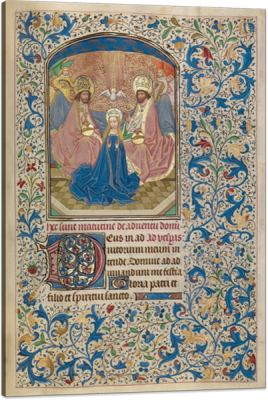 Hec sunt mutacione de adventu domi
Deus in ad ad vesp̃as
iutorium meum in
tende. Domine ad ad
iuuandum me festina
Gloria patri et
filio et spiritui sancto.